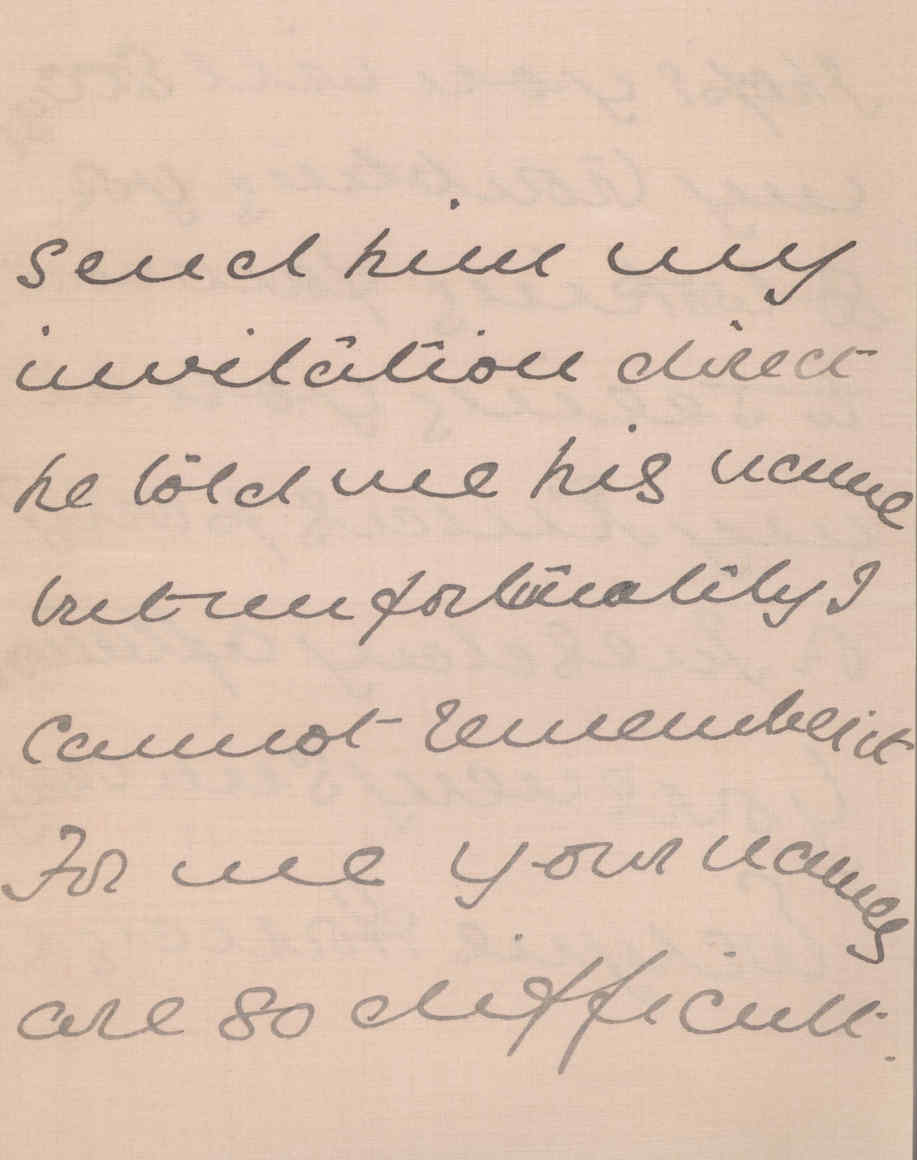 send him my
invitation direct
he told me his name
but unfortunatlily I
cannot remember it
For me your names
are so difficult.